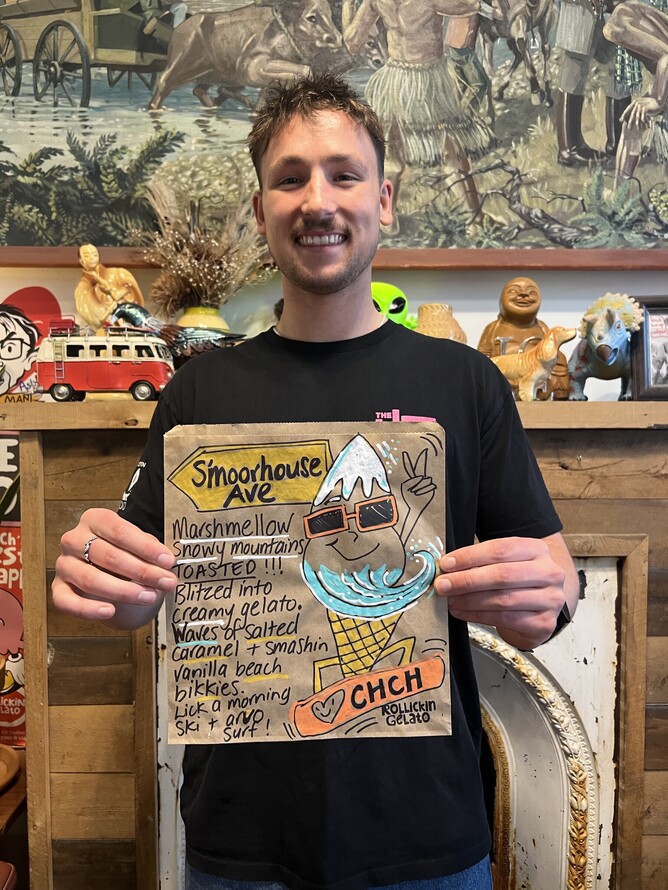 THE
S'moorhouse
Ave
Marshmellow
Snowy mountains
TOASTED !!!
Blitzed into
creamy gelato.
Waves of salted
caramel + smashin
vanilla beach
bikkies.
Lick a morning
ski + arvo
surf!
CHCH
ROLLICKIN
GELATO
MANI